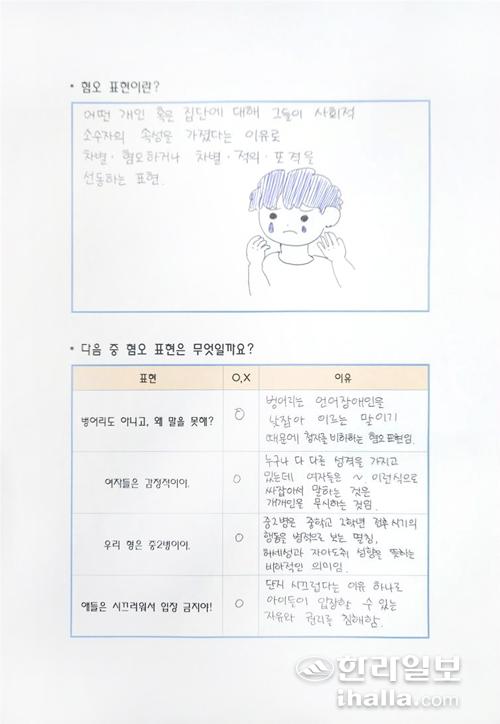 • 혐오 표현이란?
어떤 개인 혹은 집단에 대해 그들이 사회적
소수자의 속성을 가졌다는 이유로
차별·혐오하거나 차별·적의·폭력을
선동하는 표현.
• 다음 중 혐오 표현은 무엇일까요?
표현 O,X 이유
벙어리도 아니고, 왜 말을 못해? O
벙어리는 언어장애인을
낮잡아 이르는 말이기
때문에 청자를 비하하는 혐오 표현임.
여자들은 감정적이야. O
누구나 다 다른 성격을 가지고
있는데 여자들은 ~. 이런식으로
싸잡아서 말하는 것은
개개인을 무시하는 것임.
우리 형은 중2병이야. O
중2병은 중학교 2학년 전후 시기의
행동을 병적으로 보는 멸칭,
허세성과 자아도취 성향을 뜻하는
비하적인 의미임.
애들은 시끄러워서 입장 금지야! O
단지 시끄럽다는 이유 하나로
아이들이 입장할 수 있는
자유와 권리를 침해함.
한라일보
ihalla.com